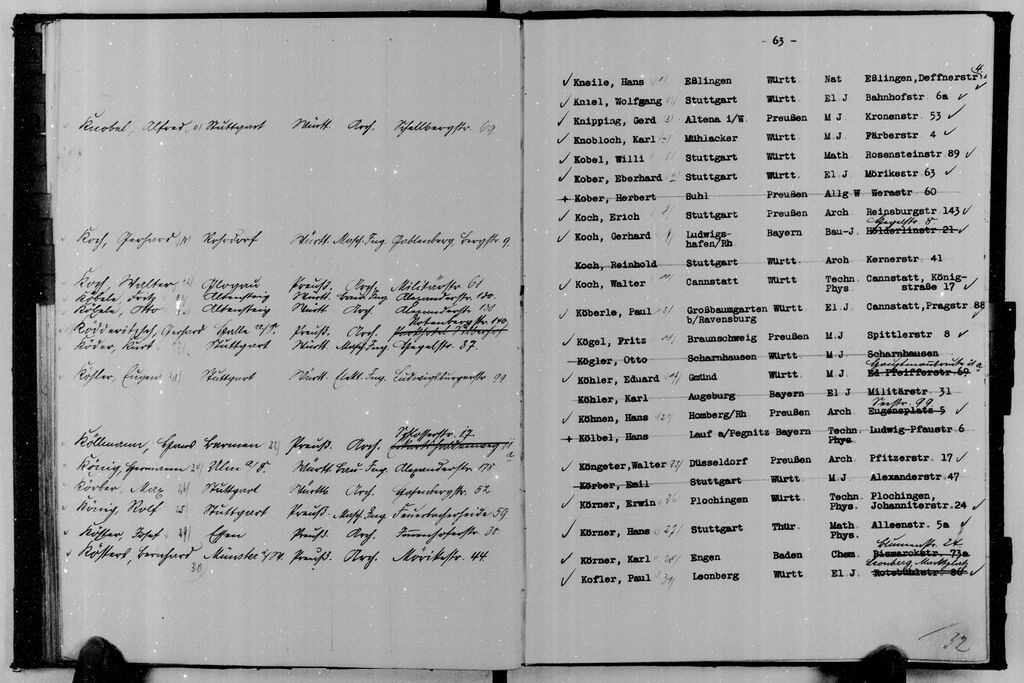 Knobel, Alfred Stuttgart Württ. Arch. Schellbergstr. 69.
Koch, Gerhard Rohrdorf Württ. Masch. Ing. Gablenberg, Bergstr. 9.
Koch, Walter Glogau Preuß. Arch. Militärstr. 61
Köbele, Fritz Altensteig Württ. Bau Ing. Alexanderstr. 130.
Köbele, Otto Altensteig Württ. Arch. Alexanderstr. 130
Rotenbergstr. 140.
Ködderitzsch, Gerhard Halle a/S. Preuß. Arch.
Köder, Kurt Stuttgart Württ. Masch. Ing. Hegelstr. 37.
Köhler, Eugen Stuttgart Württ. Elekt. Ing. Ludwigsburgerstr. 99
Schlosserstr. 17.
Köllmann, Hans Barmen Preuß. Arch.
König, Hermann Ulm a/D. Württ. Bau Ing. Alexanderstr. 175
Körber, Max Stuttgart Württ. Arch. Hasenbergstr. 52.
König, Rolf Stuttgart Preuß. Masch. Ing. Feuerbacherheide 59
Köster, Josef Essen Preuß. Arch. Immenhoferstr. 38
Kösters, Bernhard Münster i/W. Preuß. Arch. Mörikestr. 44.
30
- 63 -
4.
✓ Kneile, Hans Eßlingen Württ Nat Eßlingen, Deffnerstr
✓ Kniel, Wolfgang Stuttgart Württ. El J Bahnhofstr 6a ✓
✓ Knipping, Gerd Altena i/W. Preußen M J Kronenstr 53 ✓
✓ Knobloch, Karl Mühlacker Württ. M J. Färberstr 4 ✓
✓ Kobel, Willi Stuttgart Württ. Math Rosensteinstr 89 ✓
✓ Kober, Eberhard Stuttgart Württ. El J Mörikestr 63 ✓
+ Kober, Herbert Suhl Preußen Allg W Werastr 60
✓ Koch, Erich Stuttgart Preußen Arch Reinsburgstr 143 ✓
Hegelstr. 8.
✓ Koch, Gerhard Ludwigs- Bayern Bau-J. Hölderlinstr 21 ✓
hafen/Rh
Koch, Reinhold Stuttgart Württ Arch Kernerstr 41
✓ Koch, Walter Cannstatt Württ Techn Cannstatt, König-
Phys straße 17 ✓
✓ Köberle, Paul Großbaumgarten Württ El.J. Cannstatt, Pragstr 88
b/Ravensburg
✓ Kögel, Fritz Braunschweig Preußen M.J Spittlerstr 8 ✓
Kögler, Otto Scharnhausen Württ M J Scharnhausen
✓ Köhler, Eduard Gmünd Württ. M J Ed Pfeifferstr 69
Köhler, Karl Augsburg Bayern El J Militärstr 31
Seestr. 99
✓ Köhnen, Hans Homberg/Rh Preußen Arch Eugensplatz 5 ✓
+ Kölbel, Hans Lauf a/Pegnitz Bayern Techn. Ludwig-Pfaustr 6
Phys.
✓ Köngeter, Walter Düsseldorf Preußen Arch. Pfitzerstr. 17 ✓
Körber, Emil Stuttgart Württ M.J. Alexanderstr 47
✓ Körner, Erwin Plochingen Württ. Techn Plochingen,
Phys. Johanniterstr. 24 ✓
✓ Körner, Hans Stuttgart Thür Math Alleenstr. 5a ✓
Phys.
Blumenstr. 27.
✓ Körner, Karl Engen Baden Chem. Bismarckstr. 73a
Leonberg, Marktplatz
✓ Kofler, Paul Leonberg Württ El J. Rotebühlstr 86 ✓
32